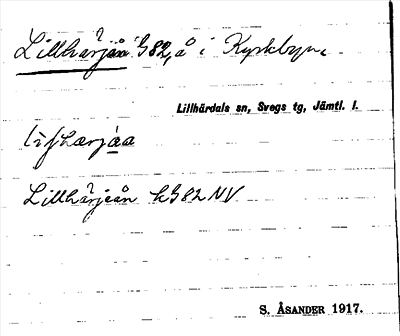 Lillhärjån G82, å i Kyrkbyn.
Lillhärdals sn, Svegs tg, Jämtl. l.
Lillhärjeån kG82 NV
S. ÅSANDER 1917.